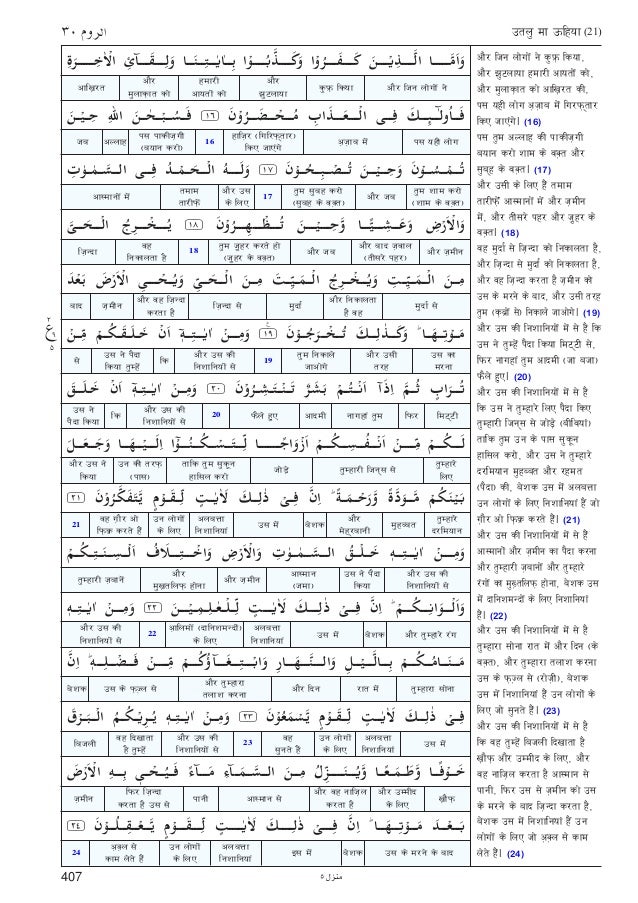 الروم ٣٠
उतलु मा ऊहिया (21)
وَاَمَّا الَّذِيْنَ كَفَرُوْا وَكَذَّبُوْا بِاٰيٰتِنَا وَلِقَآئِ الْاٰخِرَةِ
और जिन लोगों ने | कुफ़्र किया | और झुटलाया | हमारी आयतों को | और मुलाक़ात को | आख़िरत
فَاُولٰٓئِكَ فِى الْعَذَابِ مُحْضَرُوْنَ ١٦ فَسُبْحٰنَ اللّٰهِ حِيْنَ
पस यही लोग | अज़ाब में | हाज़िर (गिरिफ़्तार) किए जाएंगे | 16 | पस पाकीज़गी (बयान करो) | अल्लाह | जब
تُمْسُوْنَ وَحِيْنَ تُصْبِحُوْنَ ١٧ وَلَهُ الْحَمْدُ فِى السَّمٰوٰتِ
तुम शाम करो (शाम के वक़्त) | और जब | तुम सुबह करो (सुबह के वक़्त) | 17 | और उस के लिए | तमाम तारीफ़ें | आस्मानों में
وَالْاَرْضِ وَعَشِيًّا وَّحِيْنَ تُظْهِرُوْنَ ١٨ يُخْرِجُ الْحَىَّ
और ज़मीन | और बाद ज़वाल (तीसरे पहर) | और जब | तुम ज़ुहर करते हो (ज़ुहर के वक़्त) | 18 | वह निकालता है | ज़िन्दा
مِنَ الْمَيِّتِ وَيُخْرِجُ الْمَيِّتَ مِنَ الْحَىِّ وَيُحْىِ الْاَرْضَ بَعْدَ
मुर्दा से | और निकालता है वह | मुर्दा | ज़िन्दा से | और वह ज़िन्दा करता है | ज़मीन | बाद
مَوْتِهَا ؕ وَكَذٰلِكَ تُخْرَجُوْنَ ١٩ وَمِنْ اٰيٰتِهٖٓ اَنْ خَلَقَكُمْ مِّنْ
उस का मरना | और उसी तरह | तुम निकाले जाओगे | 19 | और उस की निशानियों से | कि | उस ने पैदा किया तुम्हें | से
تُرَابٍ ثُمَّ اِذَآ اَنْتُمْ بَشَرٌ تَنْتَشِرُوْنَ ٢٠ وَمِنْ اٰيٰتِهٖٓ اَنْ خَلَقَ
मिट्टी | फिर | नागहां तुम | आदमी | फैले हुए | 20 | और उस की निशानियों से | कि | उस ने पैदा किया
لَكُمْ مِّنْ اَنْفُسِكُمْ اَزْوَاجًا لِّتَسْكُنُوْٓا اِلَيْهَا وَجَعَلَ
तुम्हारे लिए | तुम्हारी जिन्स से | जोड़े | ताकि तुम सुकून हासिल करो | उन की तरफ़ (पास) | और उस ने किया
بَيْنَكُمْ مَّوَدَّةً وَّرَحْمَةً ؕ اِنَّ فِىْ ذٰلِكَ لَاٰيٰتٍ لِّقَوْمٍ يَّتَفَكَّرُوْنَ ٢١
तुम्हारे दरमियान | मुहब्बत | और मेहरबानी | बेशक | उस में | अलबत्ता निशानियां | उन लोगों के लिए | वह ग़ौर ओ फ़िक्र करते हैं | 21
وَمِنْ اٰيٰتِهٖ خَلْقُ السَّمٰوٰتِ وَالْاَرْضِ وَاخْتِلَافُ اَلْسِنَتِكُمْ
और उस की निशानियों से | उस ने पैदा किया | आस्मान (जमा) | और ज़मीन | और मुख़्तलिफ़ होना | तुम्हारी ज़बानें
وَاَلْوَانِكُمْ ؕ اِنَّ فِىْ ذٰلِكَ لَاٰيٰتٍ لِّلْعٰلِمِيْنَ ٢٢ وَمِنْ اٰيٰتِهٖ
और तुम्हारे रंग | बेशक | उस में | अलबत्ता निशानियां | आलिमों (दानिशमन्दों) के लिए | 22 | और उस की निशानियों से
مَنَامُكُمْ بِالَّيْلِ وَالنَّهَارِ وَابْتِغَآؤُكُمْ مِّنْ فَضْلِهٖ ؕ اِنَّ
तुम्हारा सोना | रात में | और दिन | और तुम्हारा तलाश करना | उस के फ़ज़्ल से | बेशक
فِىْ ذٰلِكَ لَاٰيٰتٍ لِّقَوْمٍ يَّسْمَعُوْنَ ٢٣ وَمِنْ اٰيٰتِهٖ يُرِيْكُمُ الْبَرْقَ
उस में | अलबत्ता निशानियां | उन लोगों के लिए | वह सुनते हैं | 23 | और उस की निशानियों से | वह दिखाता है तुम्हें | बिजली
خَوْفًا وَّطَمَعًا وَّيُنَزِّلُ مِنَ السَّمَآءِ مَآءً فَيُحْىٖ بِهِ الْاَرْضَ
ख़ौफ़ | और उम्मीद के लिए | और वह नाज़िल करता है | आस्मान से | पानी | फिर ज़िन्दा करता है उस से | ज़मीन
بَعْدَ مَوْتِهَا ؕ اِنَّ فِىْ ذٰلِكَ لَاٰيٰتٍ لِّقَوْمٍ يَّعْقِلُوْنَ ٢٤
उस के मरने के बाद | बेशक | इस में | अलबत्ता निशानियां | उन लोगों के लिए | अक़्ल से काम लेते हैं | 24
और जिन लोगों ने कुफ़्र किया,
और झुटलाया हमारी आयतों को,
और मुलाक़ात को आख़िरत की,
पस यही लोग अज़ाब में गिरफ़्तार
किए जाएंगे। (16)
पस तुम अल्लाह की पाकीज़गी
बयान करो शाम के वक़्त और
सुबह के वक़्त। (17)
और उसी के लिए हैं तमाम
तारीफ़ें आस्मानों में और ज़मीन
में, और तीसरे पहर और ज़ुहर के
वक़्त। (18)
वह मुर्दा से ज़िन्दा को निकालता है,
और ज़िन्दा से मुर्दा को निकालता है,
और वह ज़िन्दा करता है ज़मीन को
उस के मरने के बाद, और उसी तरह
तुम (क़ब्रों से) निकाले जाओगे। (19)
और उस की निशानियों में से है कि
उस ने तुम्हें पैदा किया मिट्टी से,
फिर नागहां तुम आदमी (जा बजा)
फैले हुए। (20)
और उस की निशानियों में से है
कि उस ने तुम्हारे लिए पैदा किए
तुम्हारी जिन्स से जोड़े (बीवियां)
ताकि तुम उन के पास सुकून
हासिल करो, और उस ने तुम्हारे
दरमियान मुहब्बत और रहमत
(पैदा) की, बेशक उस में अलबत्ता
उन लोगों के लिए निशानियां हैं जो
ग़ौर ओ फ़िक्र करते हैं। (21)
और उस की निशानियों में से है
आस्मानों और ज़मीन का पैदा करना
और तुम्हारी ज़बानों और तुम्हारे
रंगों का मुख़्तलिफ़ होना, बेशक उस
में दानिशमन्दों के लिए निशानियां
हैं। (22)
और उस की निशानियों में से है
तुम्हारा सोना रात में और दिन (के
वक़्त), और तुम्हारा तलाश करना
उस के फ़ज़्ल से (रोज़ी), बेशक
उस में निशानियां हैं उन लोगों के
लिए जो सुनते हैं। (23)
और उस की निशानियों में से है
कि वह तुम्हें बिजली दिखाता है
ख़ौफ़ और उम्मीद के लिए, और
वह नाज़िल करता है आस्मान से
पानी, फिर उस से ज़मीन को उस
के मरने के बाद ज़िन्दा करता है,
बेशक उस में निशानियां हैं उन
लोगों के लिए जो अक़्ल से काम
लेते हैं। (24)
407
منزل ٥